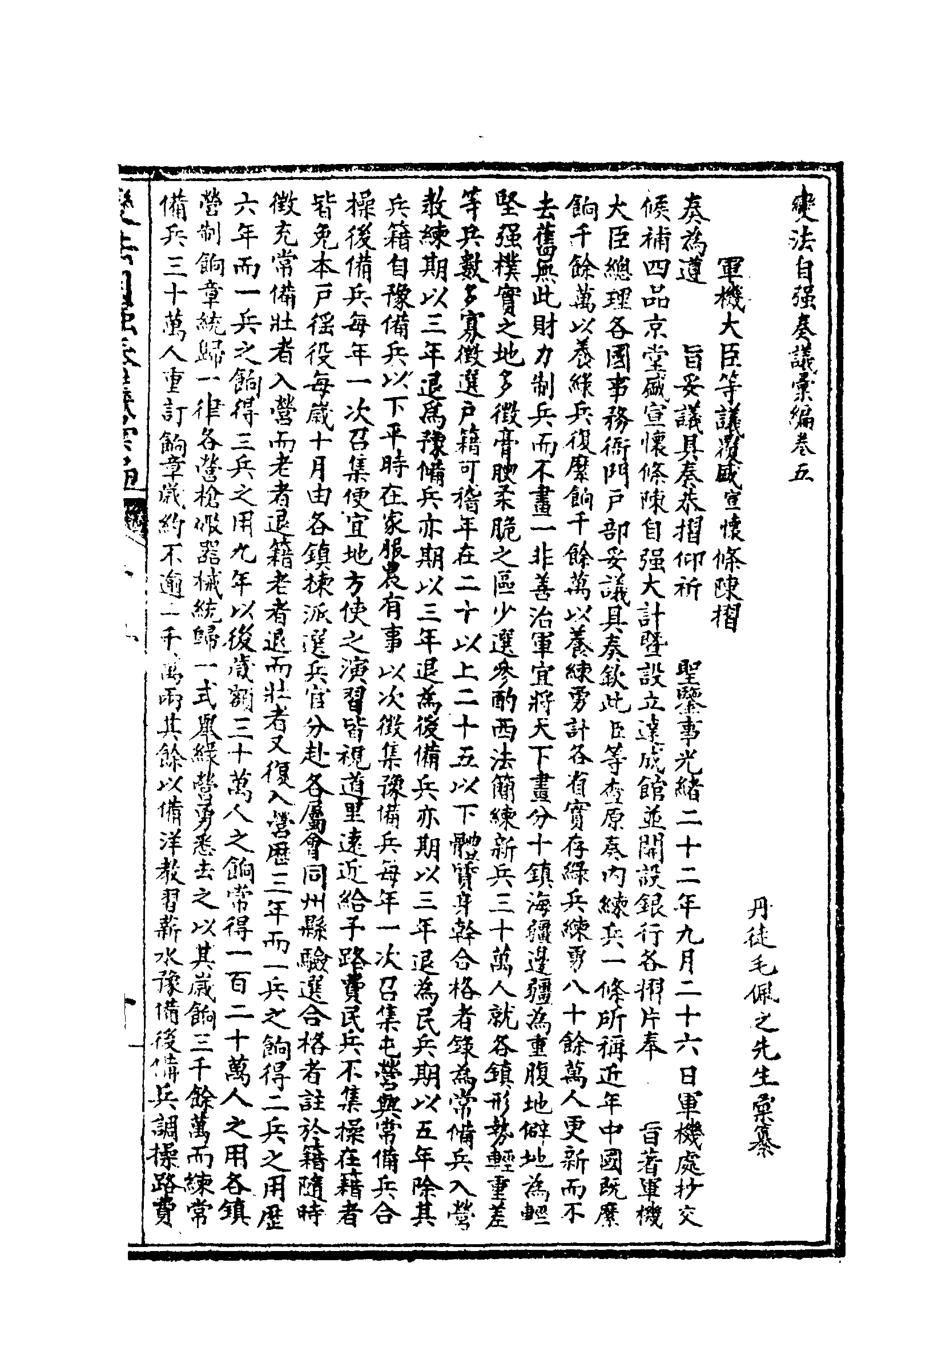 變法自强奏議彙編卷五
丹徒毛佩之先生彙纂
軍機大臣等議覆盛宣懷條陳摺
奏為遵　旨妥議具奏恭摺仰祈　聖鑒事光緒二十二年九月二十六日軍機處抄交
候補四品京堂盛宣懷條陳自强大計暨設立達成館並開設銀行各摺片奉　旨著軍機
大臣總理各國事務衙門戶部妥議具奏欽此臣等查原奏內練兵一條所稱近年中國既縻
餉千餘萬以養綠兵復縻餉千餘萬以養練勇計各省實存綠兵練勇八十餘萬人更新而不
去舊無此財力制兵而不畫一非善治軍宜將天下畫分十鎮海疆邊疆為重腹地僻地為輕
堅强樸實之地多徵膏腴柔脆之區少選參酌西法簡練新兵三十萬人就各鎮形勢輕重差
等兵數多寡徵選戶籍可稽年在二十以上二十五以下體質身幹合格者錄為常備兵入營
教練期以三年退為豫備兵亦期以三年退為後備兵亦期以三年退為民兵期以五年除其
兵籍自豫備兵以下平時在家服農有事以次徵集豫備兵每年一次召集屯營與常備兵合
操後備兵每年一次召集便宜地方使之演習皆視道里遠近給予路費民兵不集操在籍者
皆免本戶徭役每歲十月由各鎮揀派選兵官分赴各屬會同州縣驗選合格者註於籍隨時
徵充常備壯者入營而老者退籍老者退而壯者又復入營歷三年而一兵之餉得二兵之用歷
六年而一兵之餉得三兵之用九年以後歲額三十萬人之餉常得一百二十萬人之用各鎮
營制餉章統歸一律各營槍礮器械統歸一式舉綠營勇悉去之以其歲餉三千餘萬而練常
備兵三十萬人重訂餉章歲約不逾二千萬兩其餘以備洋教習薪水豫備後備兵調操路費